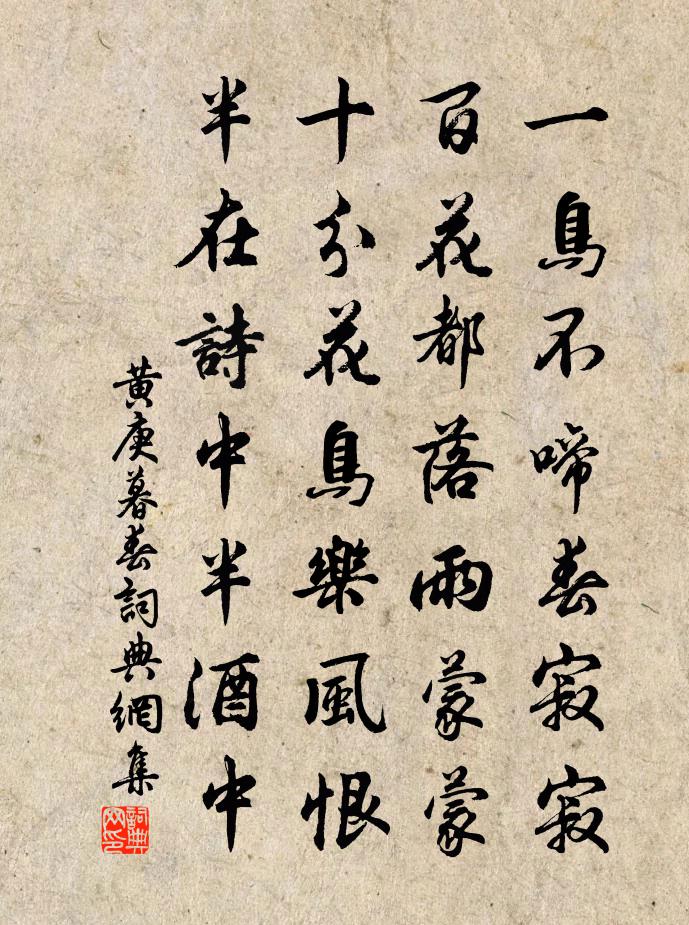 一鳥不啼春寂寂
百花都落雨蒙蒙
十分花鳥樂風恨
半在詩中半酒中
黃庚暮春詞典網集
詞典网印